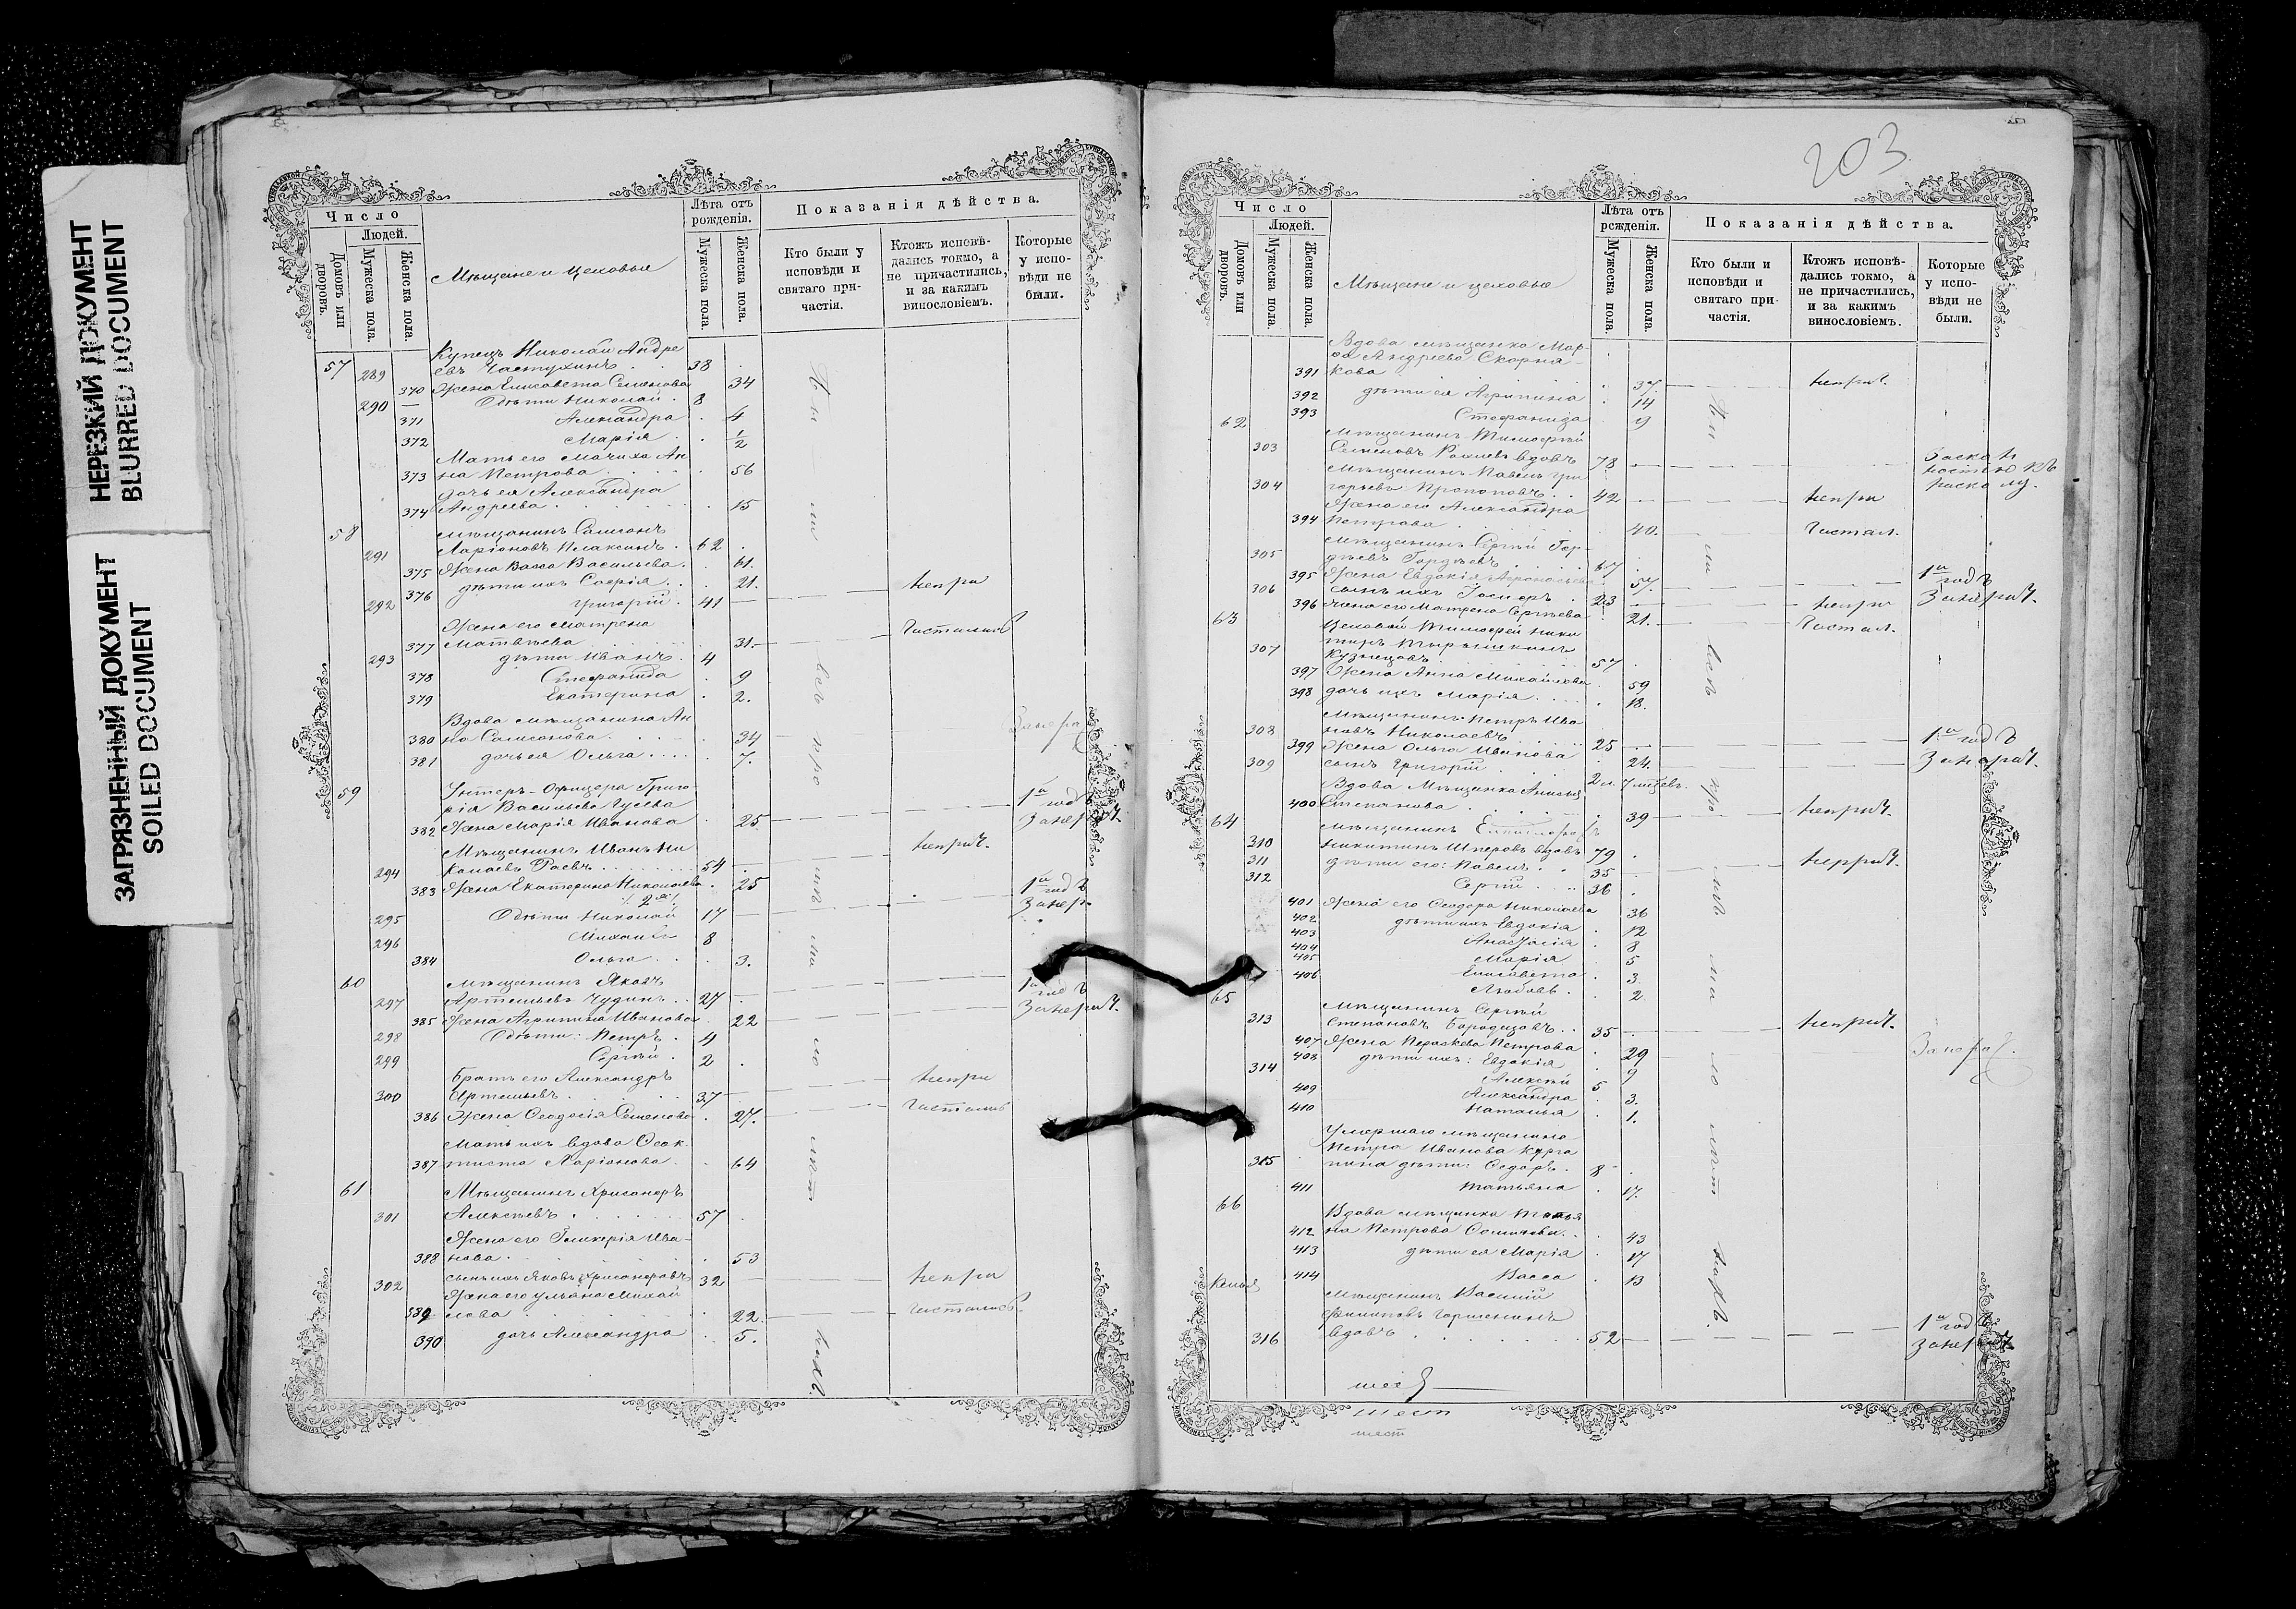 НЕРЕЗКИЙ ДОКУМЕНТ
BLURRED DOCUMENT
ЗАГРЯЗНЕННЫЙ ДОКУМЕНТ
SOILED DOCUMENT
Число
Людей.
Домовъ или дворовъ.
Мужеска пола.
Женска пола.
Мѣщане и цеховые
Лѣта отъ рожденія.
Мужеска пола.
Женска пола.
Показанія дѣйства.
Кто были у исповѣди и святаго причастія.
Ктожъ исповѣдались токмо, а не причастились, и за какимъ винословіемъ.
Которые у исповѣди не были.
Купецъ Николай Андре
57 289 евъ Частухинъ 38
370 Жена Елисавета Семенова 34
290 Дѣти Николай 8
371 Александра 4
372 Марія 1/2
Мать его мачиха Ан
373 на Петрова 56
дочь ея Александра
374 Андреева 15
58 мѣщанинъ Самсонъ
291 Ларіоновъ Плаксинъ 62
375 Жена Васса Васильева 61.
376 дѣти ихъ Софія 21.
292 Григорій 41 непри
Жена его Матрена
377 Матвѣева 31. частились
293 дѣти Иванъ 4
378 Стефанида 9
379 Екатерина 2.
Вдова мѣщанина Ан
380 на Самсонова 34
381 дочь ея Ольга 7.
59 Унтеръ-Офицера Григо
рія Васильева Гусева 1й годъ
382 Жена Марія Иванова 25
Мѣщанинъ Иванъ Ни
294 колаевъ Раевъ 54 неприч.
383 Жена Екатерина Николаева 25 1й годъ
295 Дѣти Николай 17
296 Михаилъ 8
384 Ольга 3.
60 мѣщанинъ Яковъ
297 Артемьевъ Чудинъ 27 1й годъ
385 Жена Агрипина Иванова 22
298 Дѣти: Петръ 4
299 Сергѣй 2
Братъ его Александръ
300 Артемьевъ 37 непри
386 Жена Феодосія Семенова 27. частились
Мать ихъ вдова Феок
387 тиста Ларіонова 64
61 Мѣщанинъ Хрисанфъ
301 Алексѣевъ 57
Жена его Гликерія Ива
388 нова 53
302 сынъ ихъ Яковъ Хрисанфовъ 32 непри
Жена его Ульяна Михай
389 лова 22 частились.
390 дочь Александра 5.
203
Число
Людей.
Домовъ или дворовъ.
Мужеска пола.
Женска пола.
Мѣщане и цеховые
Лѣта отъ рожденія.
Мужеска пола.
Женска пола.
Показанія дѣйства.
Кто были и исповѣди и святаго причастія.
Ктожъ исповѣдались токмо, а не причастились, и за какимъ винословіемъ.
Которые у исповѣди не были.
Вдова мѣщанка Мар
фа Андреева Скорня
391 кова 37 неприч.
392 дѣти ея Агрипина 14
393 Стефанида 9
62 мѣщанинъ Тимофѣй
303 Семеновъ вдовъ 78
Мѣщанинъ Павелъ Гри
304 горьевъ Прокоповъ 42 непри
Жена его Александра
394 Петрова 40. частил.
Мѣщанинъ Сергѣй Гор
305 дѣевъ Гордѣевъ 67
395 Жена Евдокія 57. 1й годъ
306 сынъ ихъ 23 непри
396 Жена его Матрена Сергѣева 21. частил.
63 Цеховой Тимофей Ники
307 Кузнецовъ 57
397 Жена Анна Михайлова 59
398 дочь ихъ Марія 18.
Мѣщанинъ Петръ Ива
308 новъ Николаевъ 25 1й годъ
399 Жена Ольга Иванова 24.
309 сынъ Григорій 2 м.
Вдова Мѣщанка
400 Степанова 39 неприч.
64 мѣщанинъ
310 Никитинъ вдовъ 79
311 дѣти его: Павелъ 35
312 Сергѣй 36
401 Жена его Феодора Николаева 36
402 дѣти ихъ Евдокія 12
403 Анастасія 8
404 Марія 5
405 Елисавета 3.
406 Любовь 2
65 мѣщанинъ Сергѣй
313 Степановъ 35 неприч.
407 Жена Параскева Петрова 29
408 дѣти ихъ: Евдокія 9
314 Алексѣй 5
409 Александра 3.
410 Наталья 1.
Умершаго мѣщанина
Петра Иванова
315 дѣти: Федоръ 8
411 Татьяна 17.
66 Вдова мѣщанка Татья
412 на Петрова 43
413 дѣти ея Марія 17
414 Васса 13
мѣщанинъ Василій
Филиповъ
316 вдовъ 52 1й годъ
шест
шест